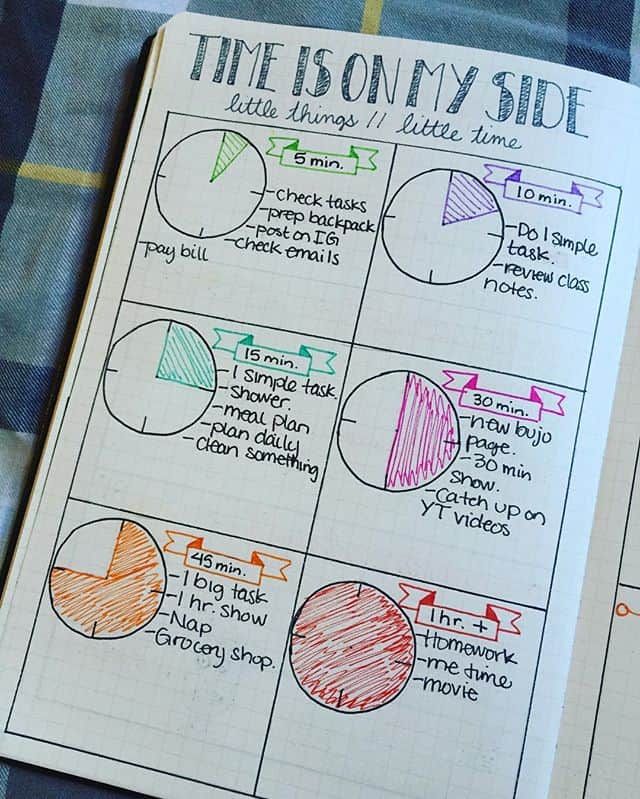 TIME IS ON MY SIDE
little things // little time
5 min.
-Check tasks
-prep backpack
-post on IG
-check emails
-pay bill
10 min.
-Do 1 simple
task.
-review class
notes.
15 min.
-1 simple task.
-shower.
-meal plan
-plan daily
-clean something
30 min.
-new bujo
page.
-30 min
show.
-Catch up on
YT videos
45 min.
-1 big task
-1 hr. show
-Nap
-Grocery shop.
1 hr. +
-Homework
-me time
-movie